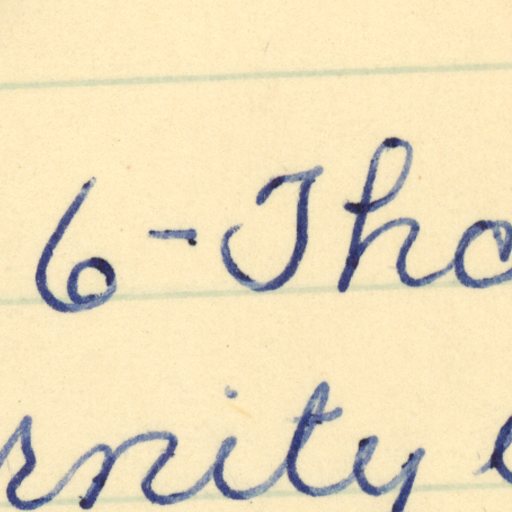 6-Tho
rnity